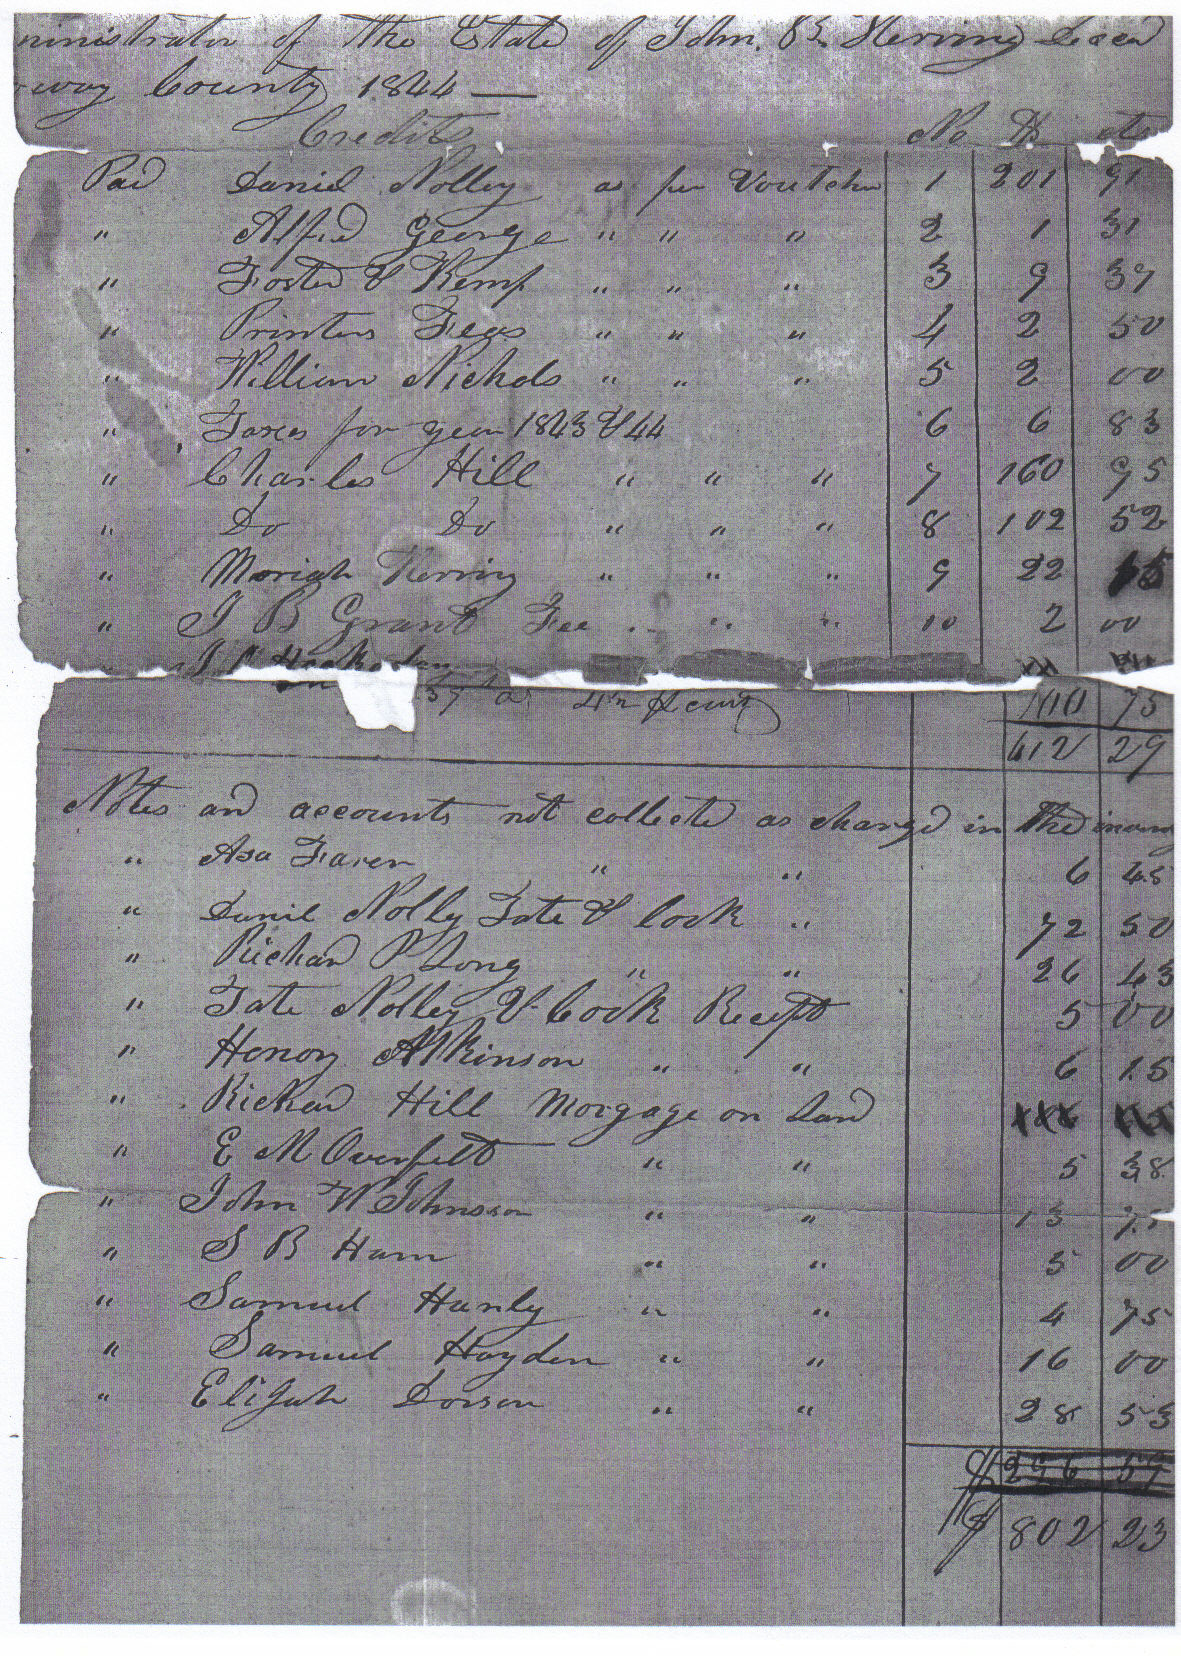 ministrator of the Estate of John Herring Decd
way County 1844
Credits No $ cts
Paid Daniel Nolley as per Voutcher 1 201 91
" Alfred George " " " 2 1 31
" Foster & Kemp " " " 3 9 37
" Printers Fees " " " 4 2 50
" William Nichols " " " 5 2 00
" Taxes for year 1843 & 44 6 6 83
" Charles Hill " " " 7 160 95
" Do Do " " " 8 102 52
" Moriah Herring " " " 9 22 15
" J B Grant Fee " " " 10 2 00
412 29
Notes and accounts not collected as charged in the
" Asa Faren " " 6 45
" Daniel Nolly Tate & Cook " 72 50
" Richard P Long " " 26 43
" Tate Nolley & Cook Recept 5 00
" Henory Atkinson " " 6 15
" Richard Hill Morgage on Land
" E M Overfelt " " 5 38
" John W Johnson " " 13 75
" S B Ham " " 5 00
" Samuel Hanly " " 4 75
" Samuel Hayden " " 16 00
" Elijah Dorson " " 28 53
$ 296 57
$ 802 23